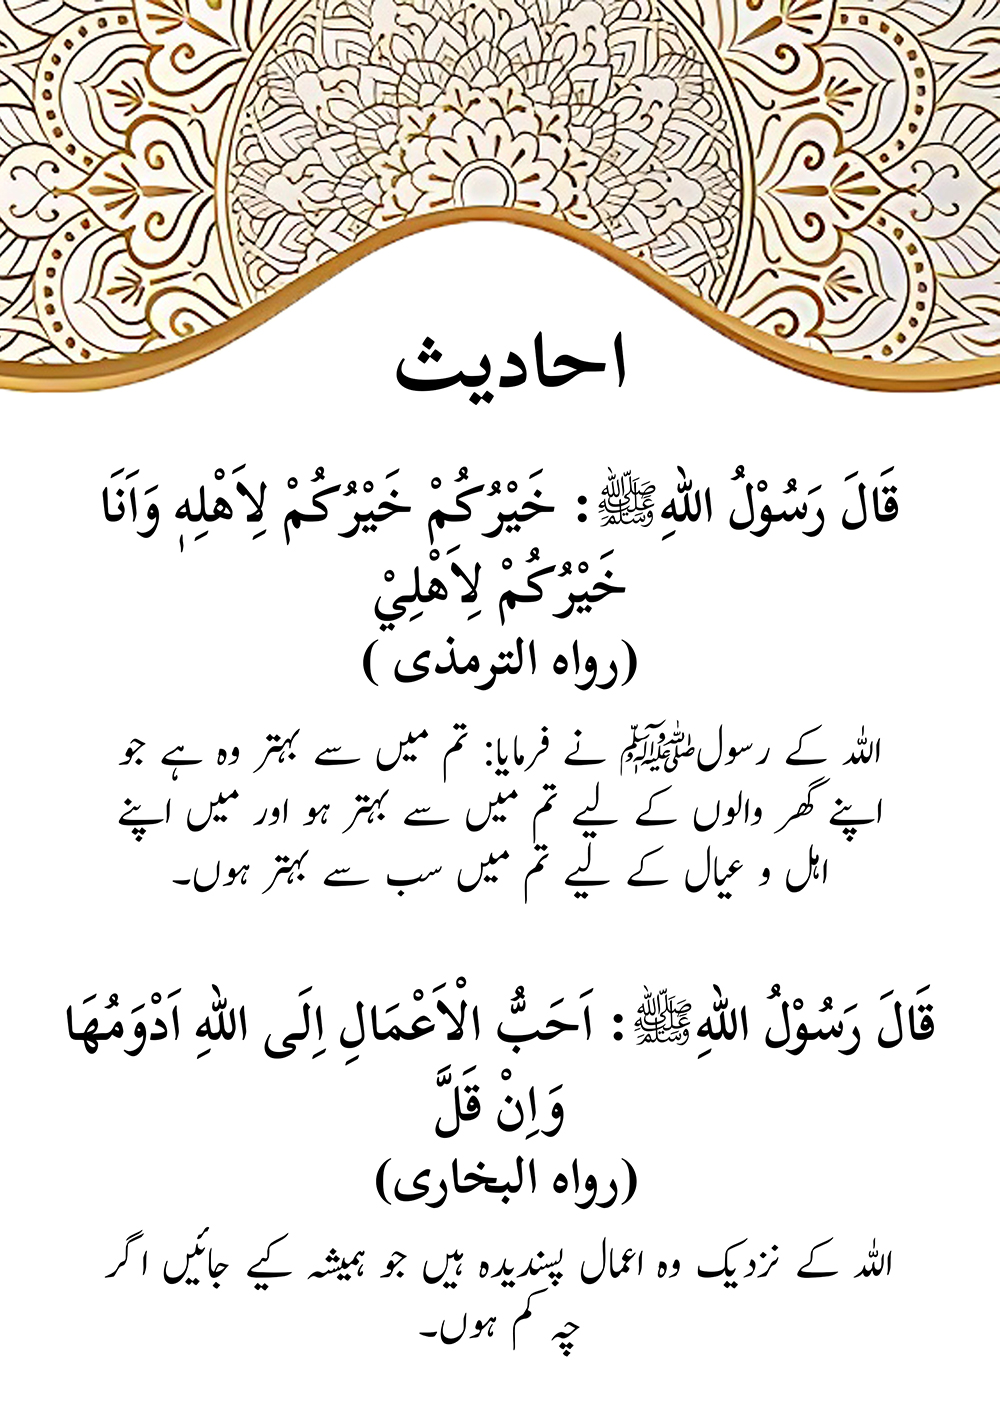 احادیث
قَالَ رَسُوْلُ اللهِﷺ: خَيْرُكُمْ خَيْرُكُمْ لِاَهْلِهٖ وَاَنَا
خَيْرُكُمْ لِاَهْلِيْ
(رواہ الترمذی )
اللہ کے رسولﷺ نے فرمایا: تم میں سے بہتر وہ ہے جو
اپنے گھر والوں کے لیے تم میں سے بہتر ہو اور میں اپنے
اہل و عیال کے لیے تم میں سب سے بہتر ہوں۔
قَالَ رَسُوْلُ اللهِﷺ: اَحَبُّ الْاَعْمَالِ اِلَى اللهِ اَدْوَمُهَا
وَاِنْ قَلَّ
(رواہ البخاری)
اللہ کے نزدیک وہ اعمال پسندیدہ ہیں جو ہمیشہ کیے جائیں اگر
چہ کم ہوں۔